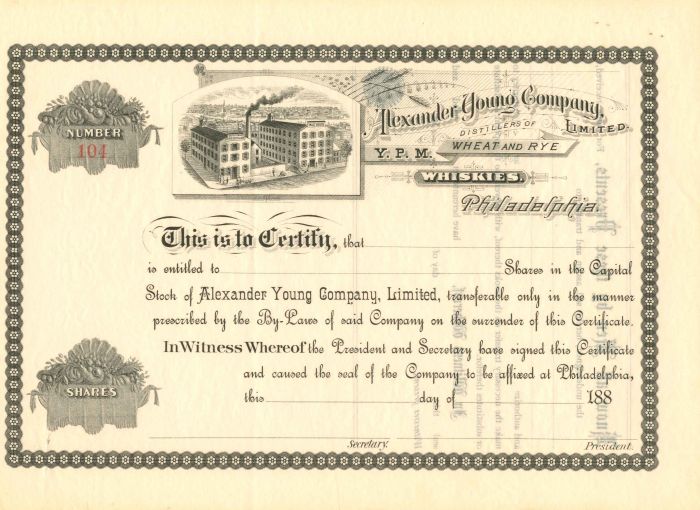 NUMBER
104
Alexander Young Company,
LIMITED.
DISTILLERS OF
Y. P. M. WHEAT AND RYE
WHISKIES.
Philadelphia.
This is to Certify, that
is entitled to Shares in the Capital
Stock of Alexander Young Company, Limited, transferable only in the manner
prescribed by the By-Laws of said Company on the surrender of this Certificate.
In Witness Whereof the President and Secretary have signed this Certificate
and caused the seal of the Company to be affixed at Philadelphia,
this day of 188
SHARES
Secretary. President.